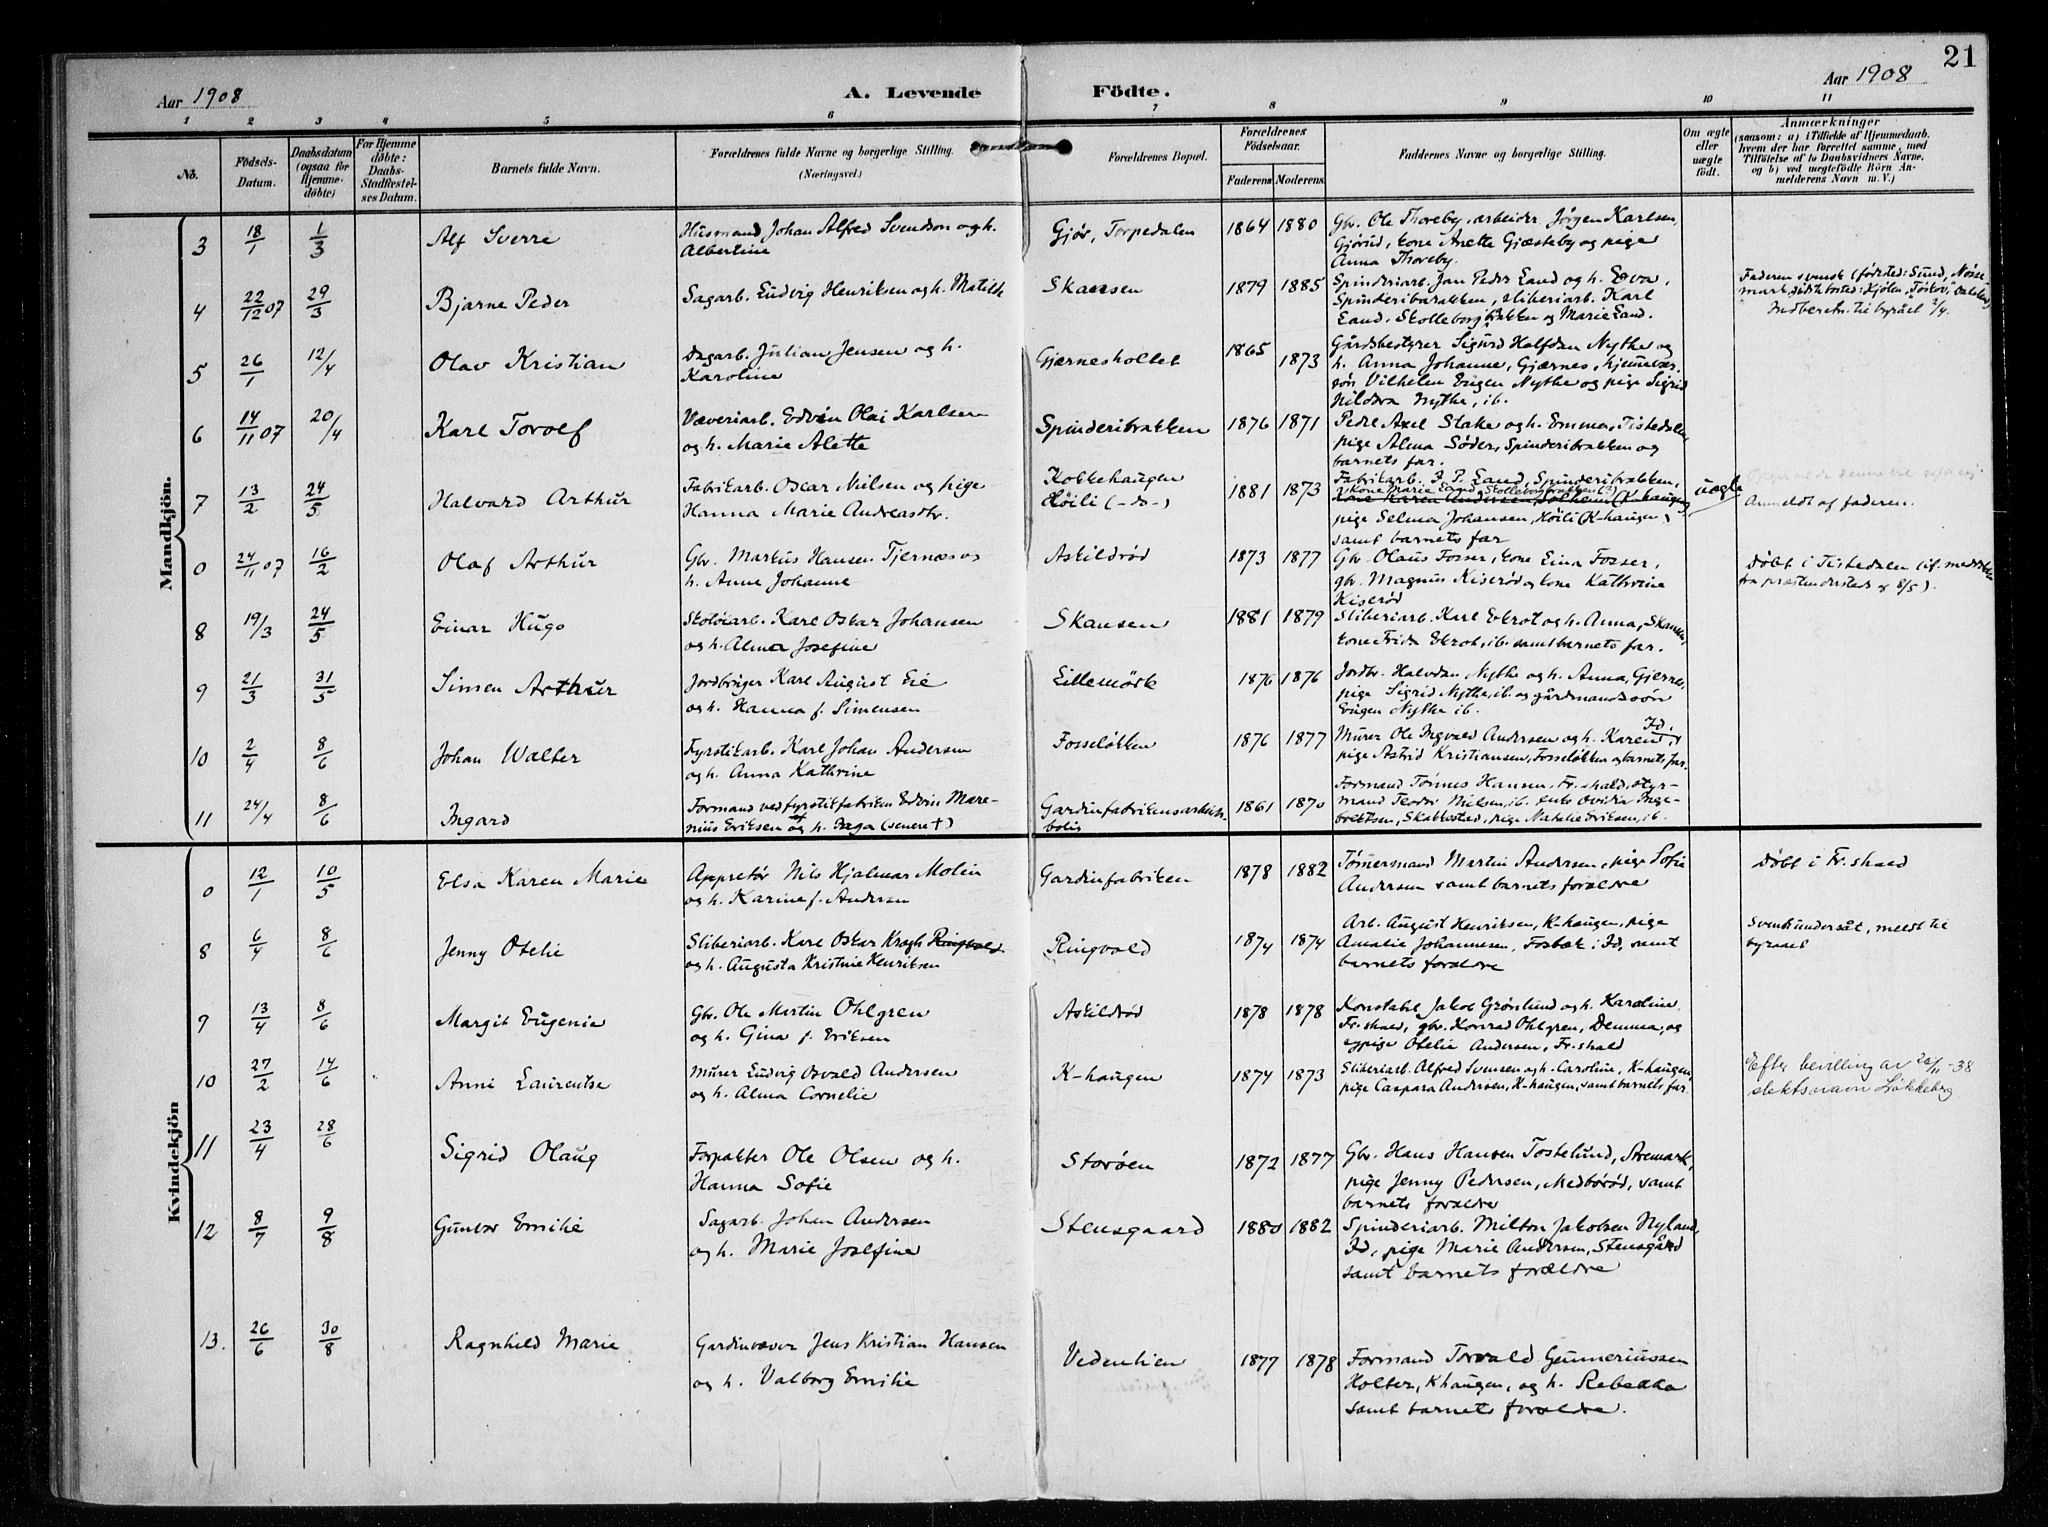 21
Aar 1908
A. Levende Födte.
Aar 1908
1 2 3 4 5 6 7 8 9 10 11
No.
Födsels-Datum.
Daabsdatum (ogsaa for Hjemme-døbte)
For Hjemme døbte: Daabs-Stadfæstelses Datum.
Barnets fulde Navn.
Forældrenes fulde Navne og borgerlige Stilling.
(Næringsvei.)
Forældrenes Bopæl.
Forældrenes Födselsaar.
Faderens Moderens
Faddernes Navne og borgerlige Stilling.
Om ægte eller uægte födt.
Anmærkninger
(saasom: a) i Tilfælde af Hjemmedaab. hvem der har forrettet samme, med Tilföielse af to Daabsvidners Navne. og b) ved uægtefödte Börn Anmelderens Navn m. V.)
Mandkjön.
3 18/1 1/3 Alf Sverre Husmand Johan Alfred Svendsen og h. Albertine Gjør, Torpedalen 1864 1880 Gbr. Ole Thoreby, arbeider Jørgen Karlsen, Gjørud, kone Anette Gjæsteby og pige Anna Thoreby.
4 22/12 07 29/3 Bjarne Peder Sagarb. Ludvig Henriksen og h. Matilde Skansen 1879 1885 Spinderiarb. Jan Peder Land og h. Lova, Spinderibarakken, sliberiarb. Karl Land, Skolleborgbrakken og Marie Land. Faderen svensk (fødested: Sund, Nøssemark, Indberetn. til byrået 2/4.
5 26/1 12/4 Olav Kristian Dagarb. Julian Jensen og h. Karoline Gjærnesholtet 1865 1873 Gårdsbestyrer Sigurd Halfdan Nythe og h. Anna Johanne, Gjærnes, hjemmevær. søn Vilhelm Eugen Nythe og pige Sigrid Hildra Nythe, ib.
6 14/11 07 20/4 Karl Torolf Væveriarb. Edvin Olai Karlsen og h. Marie Alette Spinderibrakken 1876 1871 Peder Axel Stake og h. Emma, Tistedalen, pige Alma Søder, Spinderibrakken og barnets far.
7 13/2 24/5 Halvard Arthur Fabrikarb. Oscar Nilsen og pige Hanna Marie Andreasdtr. Kokkehaugen Høili (-do-) 1881 1873 Fabrikarb. J. P. Land, Spinderibrakken, kone Marie Land, Skolleborgbrakken (?) kone Karen Andersen Solheim (K-haugen) pige Selma Johansen, Høili (K-haugen) samt barnets far uægte Anmeldt af faderen.
0 24/11 07 16/2 Olaf Arthur Gbr. Markus Hansen Tjernæs og h. Anne Johanne Askildrød 1873 1877 Gbr. Olaus Fosser, kone Lina Fosser, gbr. Magnus Kiserød og kone Kathrine Kiserød Døbt i Tistedalen (if. meddelelse fra præsten dersteds af 8/5).
8 19/3 24/5 Einar Hugo Skotøiarb. Karl Oskar Johansen og h. Alma Josefine Skansen 1881 1879 Sliberiarb. Karl Ekrot og h. Anna, Skansen, kone Frida Ekrot, ib. samt barnets far.
9 21/3 31/5 Simen Arthur Jordbruger Karl August Lie og h. Hanna f. Simensen Lillemørk 1876 1876 Jordbr. Halvdan Nythe og h. Anna, Gjernes, pige Sigrid Nythe, ib. og gårdmandssøn Eugen Nythe ib.
10 2/4 8/6 Johan Walter Fyrstikarb. Karl Johan Andersen og h. Anna Kathrine Fosseløkken 1876 1877 Murer Ole Ingvald Andersen og h. Karen, Id, pige Astrid Kristiansen, Fosseløkken og barnets far.
11 24/4 8/6 Ingard Formand ved fyrstikfabriken Edvin Marenius Eriksen og h. Inga (senere †) Gardinfabrikens arbeiderbolig 1861 1870 Formand Tønnes Hansen, Fr.shald, styrmand Teodor Nielsen, ib. enke Ovidia Ingebretsen, Skakkestad, pige Natalie Eriksen, ib.
Kvindekjön
0 12/1 10/5 Elsa Karen Marie Appretør Nils Hjalmar Molin og h. Karine f. Andersen Gardinfabriken 1878 1882 Tømmermand Martin Andersen, pige Sofie Andersen samt barnets forældre Døbt i Fr.shald
8 6/4 8/6 Jenny Otelie Sliberiarb. Karl Oskar Kragh Ringvold og h. Augusta Kristine Henriksen Ringvold 1874 1874 Arb. August Henriksen, K-haugen, pige Amalie Johannesen, Fosbæk i Id, samt barnets forældre Svensk undersåt, meldt til byraaet
9 13/4 8/6 Margit Eugenie Gbr. Ole Martin Ohlgren og h. Gina f. Eriksen Askildrød 1878 1878 Konstabel Jakob Grønlund og h. Karoline, Fr.shald, gbr. Konrad Ohlgren, Demma, og sypige Otelie Andersen, Fr.shald
10 27/2 14/6 Anni Laurentse Murer Ludvig Osvald Andersen og h. Alma Cornelie K-haugen 1874 1873 Sliberiarb. Alfred Svensen og h. Caroline, K-haugen, pige Caspara Andersen, K-haugen, samt barnets far. Efter bevilling av 26/11-38 slektsnavn Løkkeberg
11 23/4 28/6 Sigrid Olaug Forpakter Ole Olsen og h. Hanna Sofie Storøen 1872 1877 Gbr. Hans Hansen Tostelund, Aremark, pige Jenny Pedersen, Medbørød, samt barnets forældre
12 8/7 9/8 Gunvor Emilie Sagarb. Johan Andersen og h. Marie Josefine Stensgaard 1880 1882 Spinderiarb. Milton Jakobsen Nyland, Id, pige Marie Andersen, Stensgård samt barnets forældre
13. 26/6 30/8 Ragnhild Marie Gardinvæver Jens Kristian Hansen og h. Valborg Emilie Vedenlien 1877 1878 Formand Torvald Gunneriussen Holter, Khaugen, og h. Rebekka samt barnets forældre.